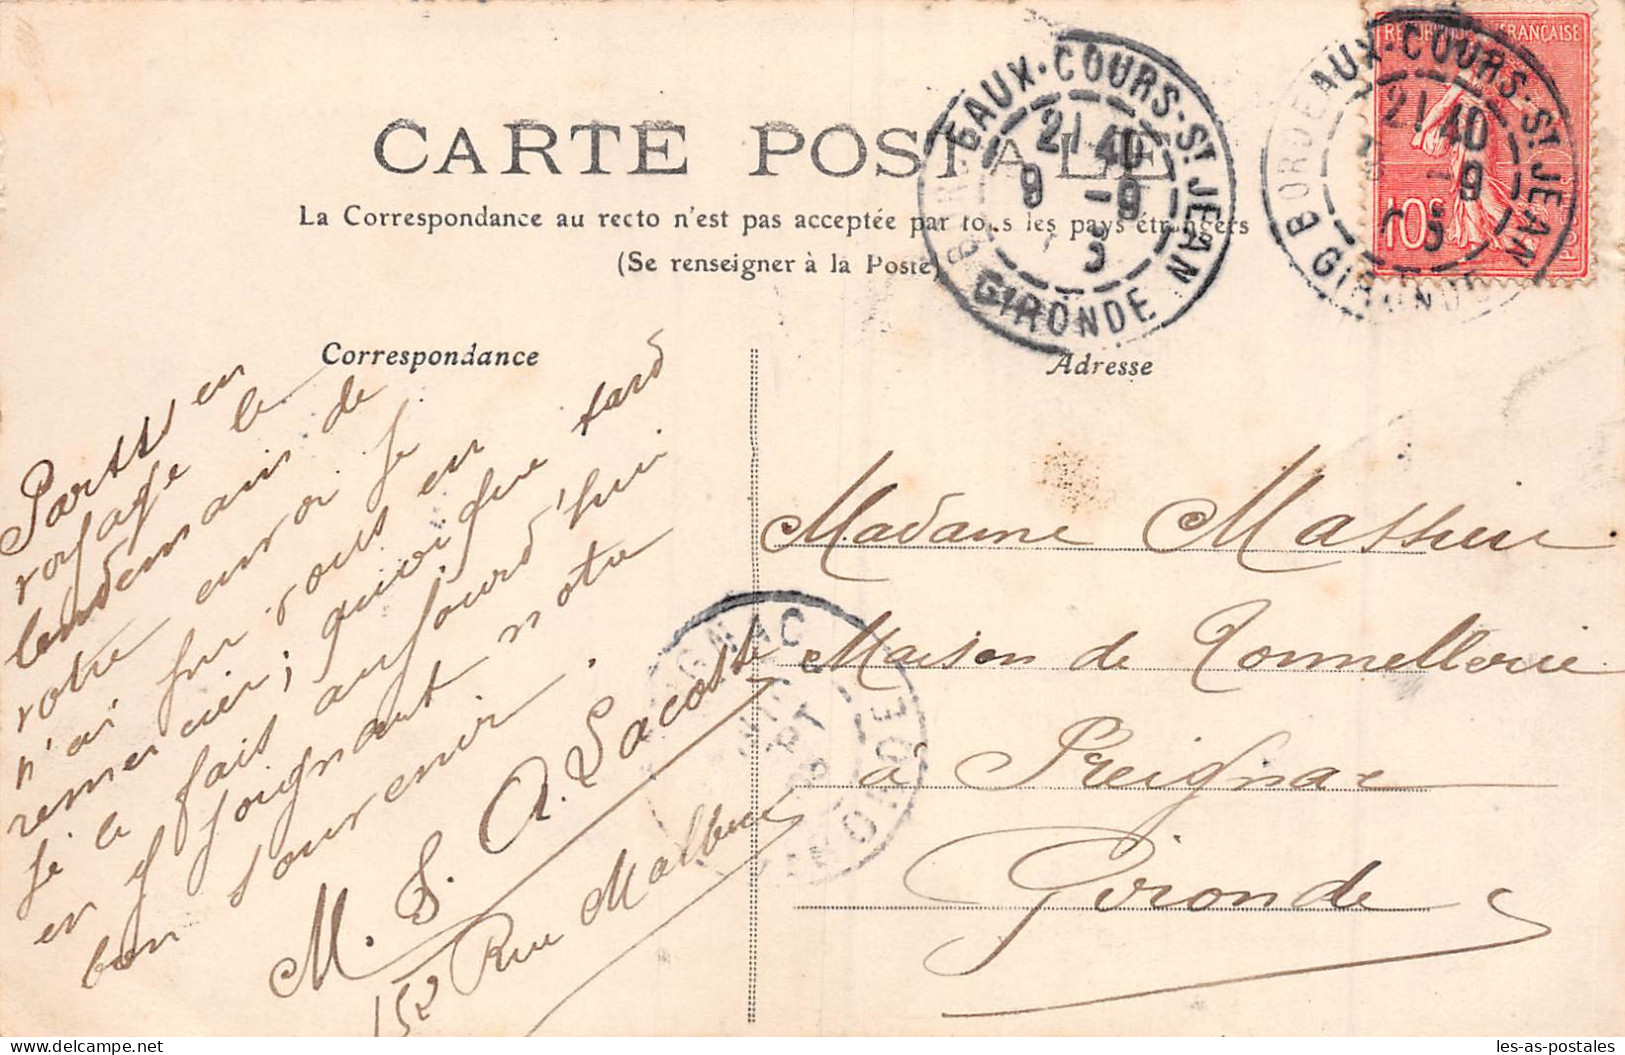 CARTE POSTALE
La Correspondance au recto n'est pas acceptée par tous les pays étrangers
(Se renseigner à la Poste)
BORDEAUX-COURS-St JEAN
21 40
9 -9
05
GIRONDE
BORDEAUX-COURS-St JEAN
21 40
-9
05
GIRONDE
REPUBLIQUE FRANÇAISE
10c
POSTES
Correspondance
Adresse
Partis en
voyage le
lendemain de
votre envoi je
n'ai pu vous en
remercier; quoique tard
je le fais aujourd'hui
en y joignant notre
bon souvenir.
M. & A. Lacoste
152 Rue Malbec
Madame Mathieu
Maison de Tonnellerie
à Preignac
Gironde
PREIGNAC
GIRONDE
les-as-postales
www.delcampe.net